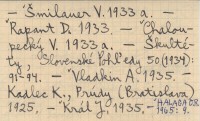 - "Šmilauer V. 1933 a. -
"Rapant D. 1933. - "Chalou-
pecký V. 1933 a. - Škulté-
ty, Slovenské Pohľady 50 (1934):
91-94. - "Vladkin A. 1935. -
Kadlec K., Prúdy (Bratislava)
1925. - "Král J. 1935. - "HALAGA O.R.
1965: 9.